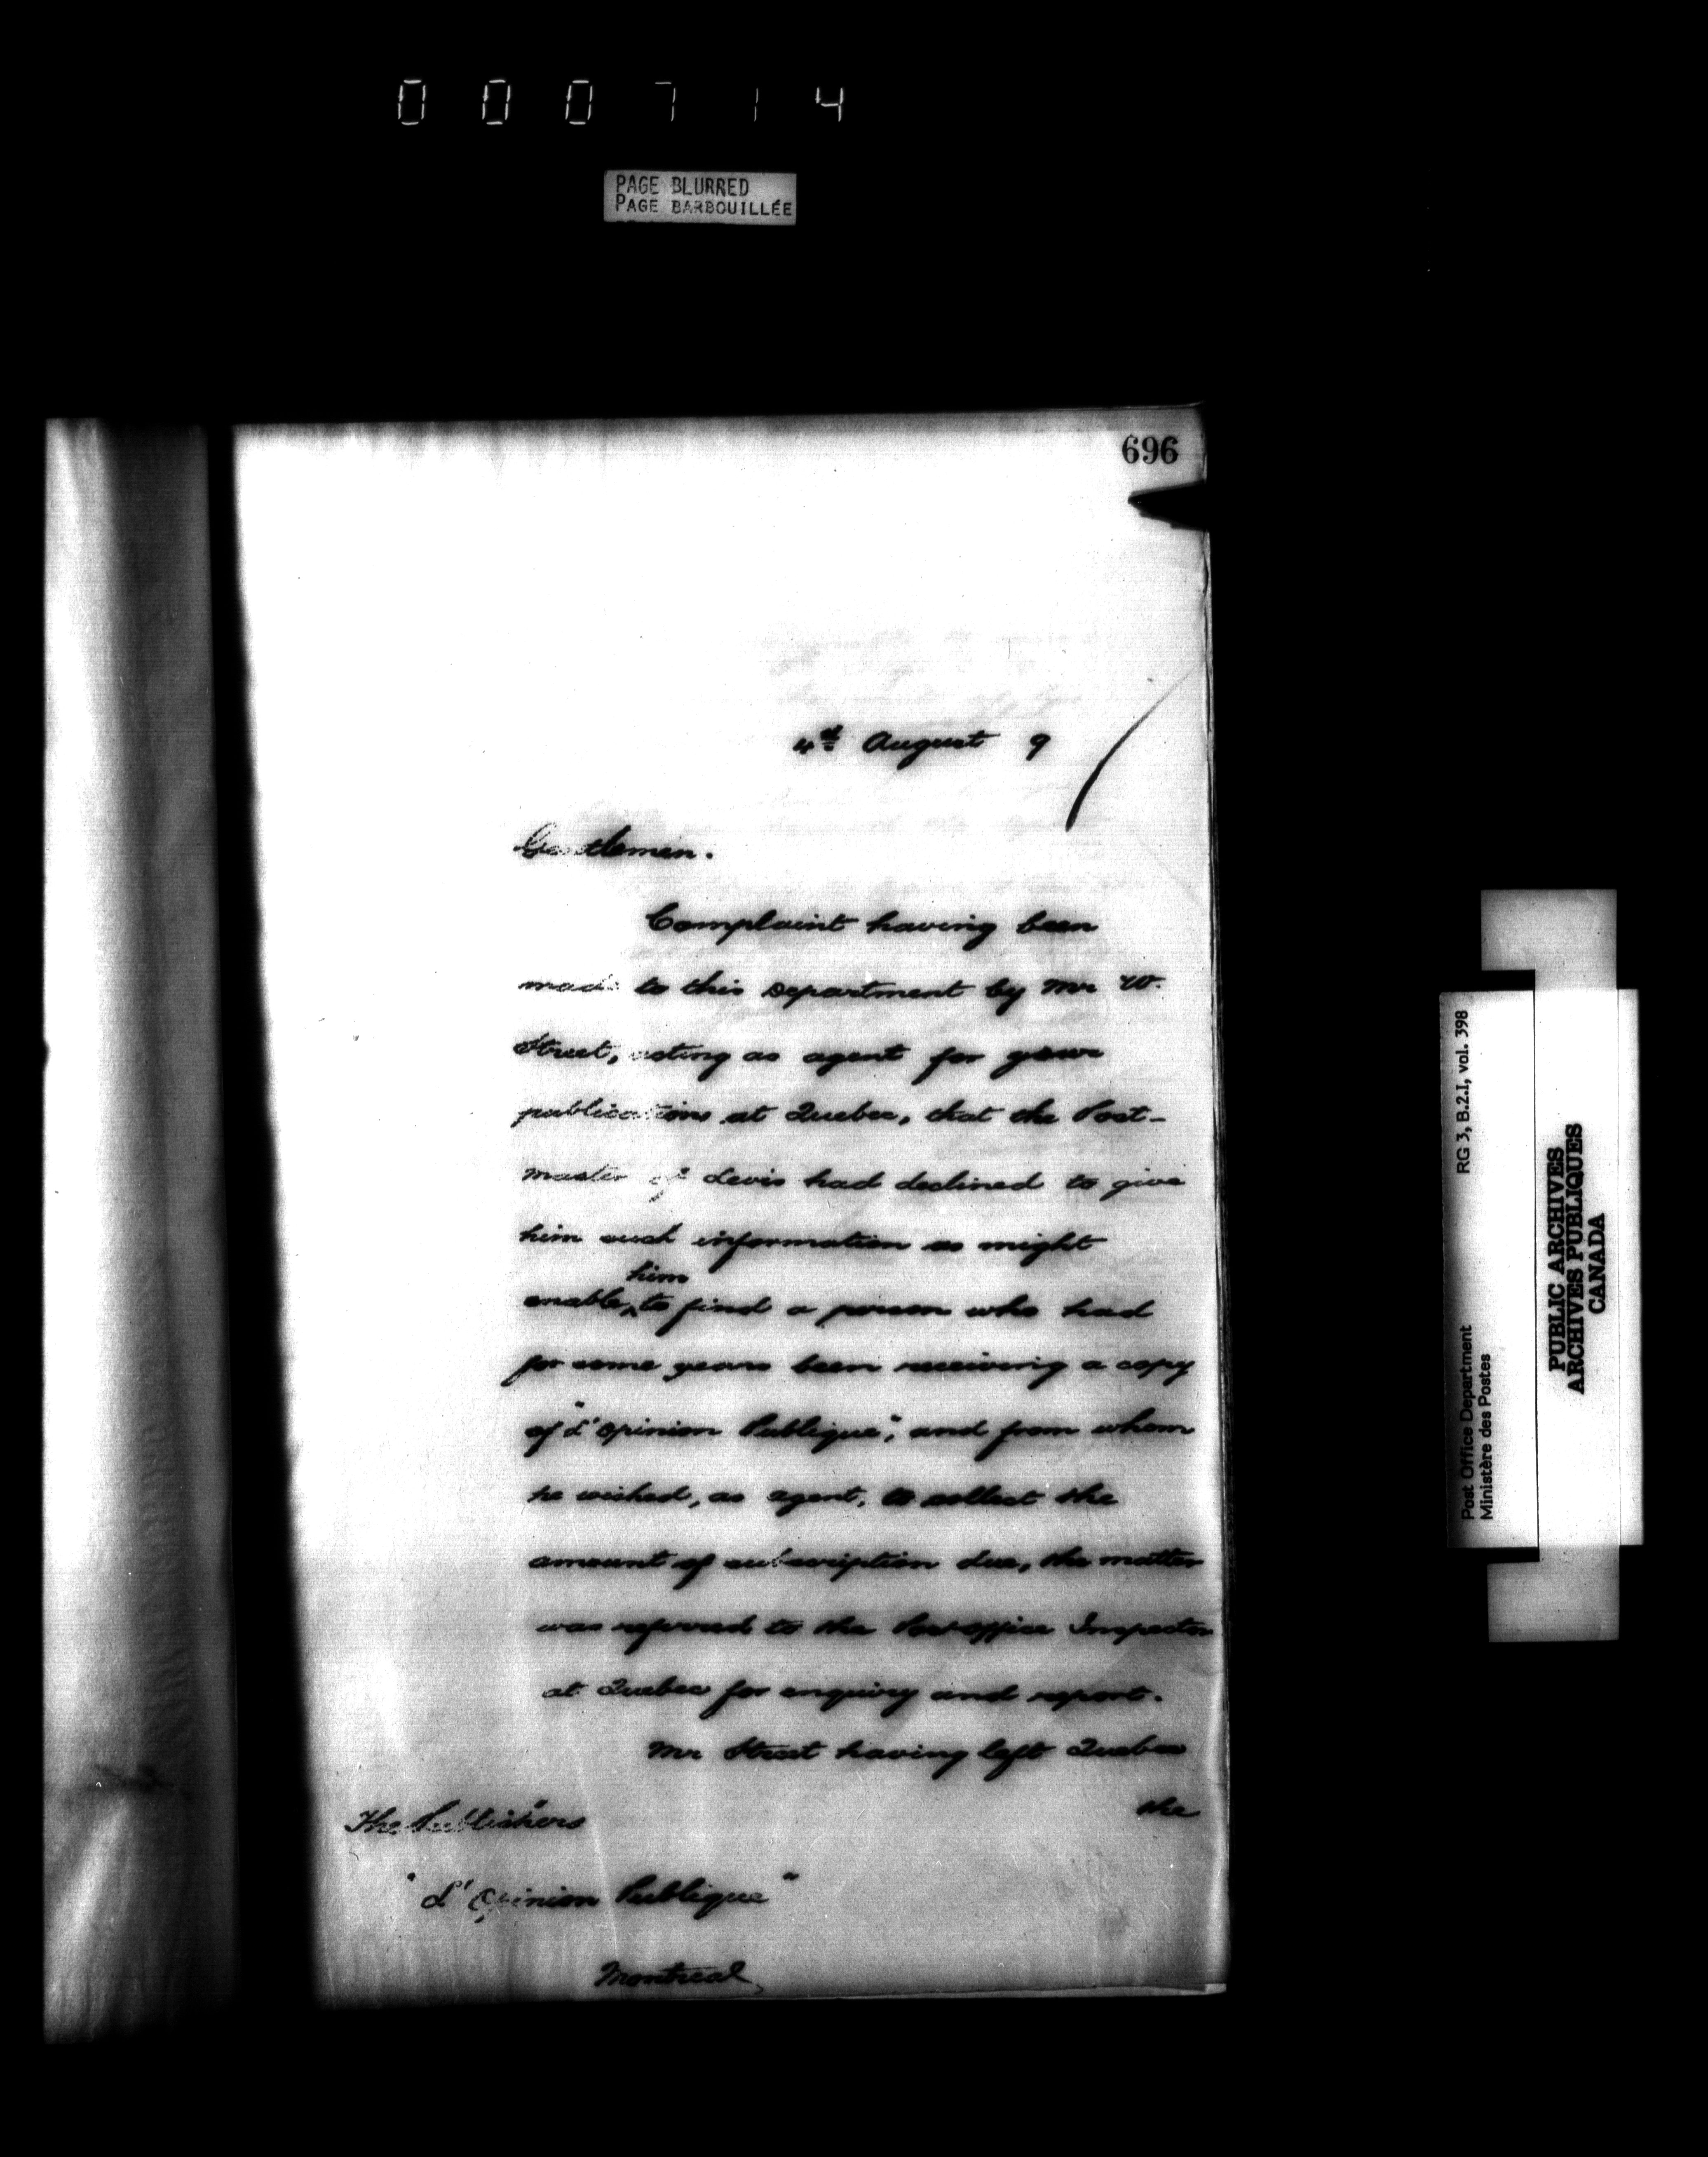 000714
PAGE BLURRED
PAGE BARBOUILLÉE
696
4th August 9
Gentlemen.
Complaint having been
made to this Department by Mr W.
Street, acting as agent for your
publications at Quebec, that the Post-
master of Levis had declined to give
him such information as might
enable him to find a person who had
for some years been receiving a copy
of "L'Opinion Publique", and from whom
he wished, as agent, to collect the
amount of subscription due, the matter
was referred to the Post Office Inspector
at Quebec for enquiry and report.
Mr Street having left Quebec
the
The Publishers
"L'Opinion Publique"
Montreal
Post Office Department
Ministère des Postes
RG 3, B.2.I, vol. 398
PUBLIC ARCHIVES
ARCHIVES PUBLIQUES
CANADA